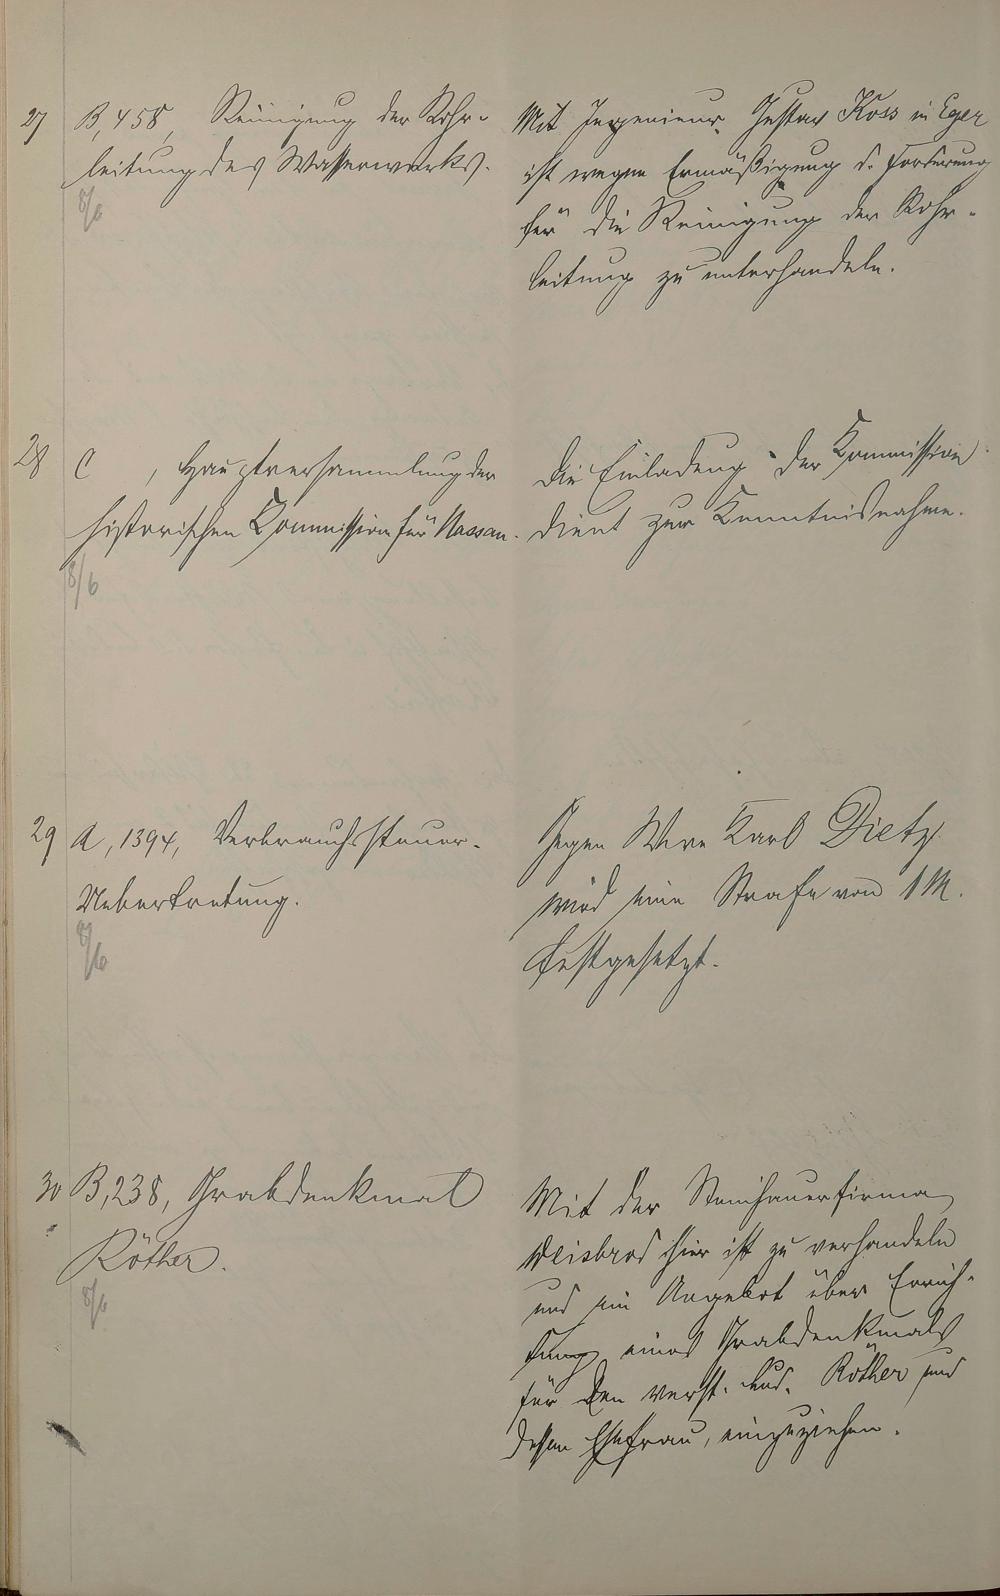 27 B, 458, Reinigung der Rohr-
leitung des Wasserwerks.
8/6
Mit Ingenieur Gustav Koss in Eger
ist wegen Ermäßigung d. Forderung
für die Reinigung der Rohr-
leitung zu unterhandeln.
28 C , Hauptversammlung der
historischen Kommission für Nassau.
8/6
Die Einladung der Kommission
dient zur Kenntnisnahme.
29 A, 1394, Verbrauchssteuer-
Uebertretung.
8/6
Gegen Karl Dietz
wird eine Strafe von 1 M.
festgesetzt.
30 B, 238, Grabdenkmal
Röther.
8/6
Mit der Steinhauerfirma
Weisbrod hier ist zu verhandeln
und ein Angebot über Errich-
tung eines Grabdenkmals
für den verst. Röther und
dessen Ehefrau, einzuziehen.